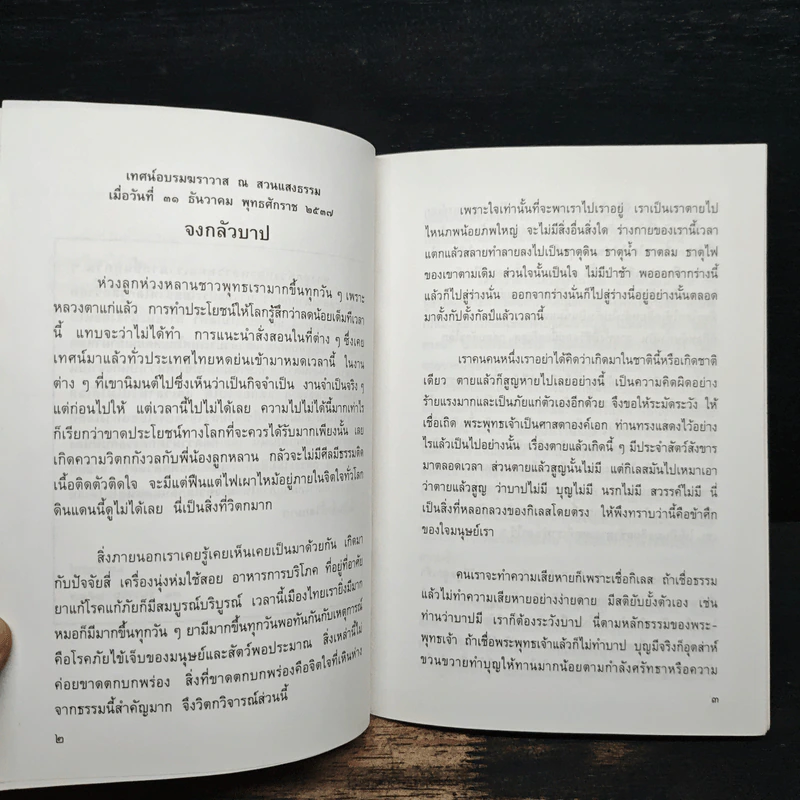 เทศน์อบรมฆราวาส ณ สวนแสงธรรม
เมื่อวันที่ ๓๑ ธันวาคม พุทธศักราช ๒๕๓๗
จงกลัวบาป
ห่วงลูกห่วงหลานชาวพุทธเรามากขึ้นทุกวัน ๆ เพราะ
หลวงตาแก่แล้ว การทำประโยชน์ให้โลกรู้สึกว่าลดน้อยเต็มทีเวลา
นี้ แทบจะว่าไม่ได้ทำ การแนะนำสั่งสอนในที่ต่าง ๆ ซึ่งเคย
เทศน์มาแล้วทั่วประเทศไทยหดย่นเข้ามาหมดเวลานี้ ในงาน
ต่าง ๆ ที่เขานิมนต์ไปซึ่งเห็นว่าเป็นกิจจำเป็น งานจำเป็นจริง ๆ
แต่ก่อนไปให้ แต่เวลานี้ไปไม่ได้เลย ความไปไม่ได้นี้มากเท่าไร
ก็เรียกว่าขาดประโยชน์ทางโลกที่จะควรได้รับมากเพียงนั้น เลย
เกิดความวิตกกังวลกับพี่น้องลูกหลาน กลัวจะไม่มีศีลมีธรรมติด
เนื้อติดตัวติดใจ จะมีแต่ฟืนแต่ไฟเผาไหม้อยู่ภายในจิตใจทั่วโลก
ดินแดนนี้ดูไม่ได้เลย นี่เป็นสิ่งที่วิตกมาก
สิ่งภายนอกเราเคยรู้เคยเห็นเคยเป็นมาด้วยกัน เกิดมา
กับปัจจัยสี่ เครื่องนุ่งห่มใช้สอย อาหารการบริโภค ที่อยู่ที่อาศัย
ยาแก้โรคแก้ภัยก็มีสมบูรณ์บริบูรณ์ เวลานี้เมืองไทยเรายิ่งมีมาก
หมอก็มีมากขึ้นทุกวัน ๆ ยามีมากขึ้นทุกวันพอทันกันกับเหตุการณ์
คือโรคภัยไข้เจ็บของมนุษย์และสัตว์พอประมาณ สิ่งเหล่านี้ไม่
ค่อยขาดตกบกพร่อง สิ่งที่ขาดตกบกพร่องคือจิตใจที่เหินห่าง
จากธรรมนี้สำคัญมาก จึงวิตกวิจารณ์ส่วนนี้
๒
เพราะใจเท่านั้นที่จะพาเราไปเราอยู่ เราเป็นเราตายไป
ไหนภพน้อยภพใหญ่ จะไม่มีสิ่งอื่นสิ่งใด ร่างกายของเรานี้เวลา
แตกแล้วสลายทำลายลงไปเป็นธาตุดิน ธาตุน้ำ ธาตุลม ธาตุไฟ
ของเขาตามเดิม ส่วนใจนั้นเป็นใจ ไม่มีป่าช้า พอออกจากร่างนี้
แล้วก็ไปสู่ร่างนั้น ออกจากร่างนั้นก็ไปสู่ร่างนี่อยู่อย่างนั้นตลอด
มาตั้งกัปตั้งกัลป์แล้วเวลานี้
เราคนคนหนึ่งเราอย่าได้คิดว่าเกิดมาในชาตินี้หรือเกิดชาติ
เดียว ตายแล้วก็สูญหายไปเลยอย่างนี้ เป็นความคิดผิดอย่าง
ร้ายแรงมากและเป็นภัยแก่ตัวเองอีกด้วย จึงขอให้ระมัดระวัง ให้
เชื่อเถิด พระพุทธเจ้าเป็นศาสดาองค์เอก ท่านทรงแสดงไว้อย่าง
ไรแล้วเป็นไปอย่างนั้น เรื่องตายแล้วเกิดนี้ ๆ มีประจำสัตว์สังขาร
มาตลอดเวลา ส่วนตายแล้วสูญนั้นไม่มี แต่กิเลสมันไปเหมาเอา
ว่าตายแล้วสูญ ว่าบาปไม่มี บุญไม่มี นรกไม่มี สวรรค์ไม่มี นี่
เป็นสิ่งที่หลอกลวงของกิเลสโดยตรง ให้พึงทราบว่านี้คือข้าศึก
ของใจมนุษย์เรา
คนเราจะทำความเสียหายก็เพราะเชื่อกิเลส ถ้าเชื่อธรรม
แล้วไม่ทำความเสียหายอย่างง่ายดาย มีสติยับยั้งตัวเอง เช่น
ท่านว่าบาปมี เราก็ต้องระวังบาป นี่ตามหลักธรรมของพระ-
พุทธเจ้า ถ้าเชื่อพระพุทธเจ้าแล้วก็ไม่ทำบาป บุญมีจริงก็อุตส่าห์
ขวนขวายทำบุญให้ทานมากน้อยตามกำลังศรัทธาหรือความ
๓